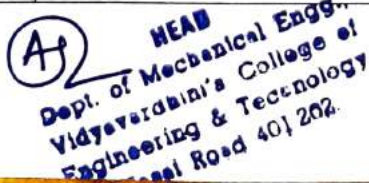 HEAD
Dept. of Mechanical Engg.,
Vidyavardhini's College of
Engineering & Technology
Road 401 202.